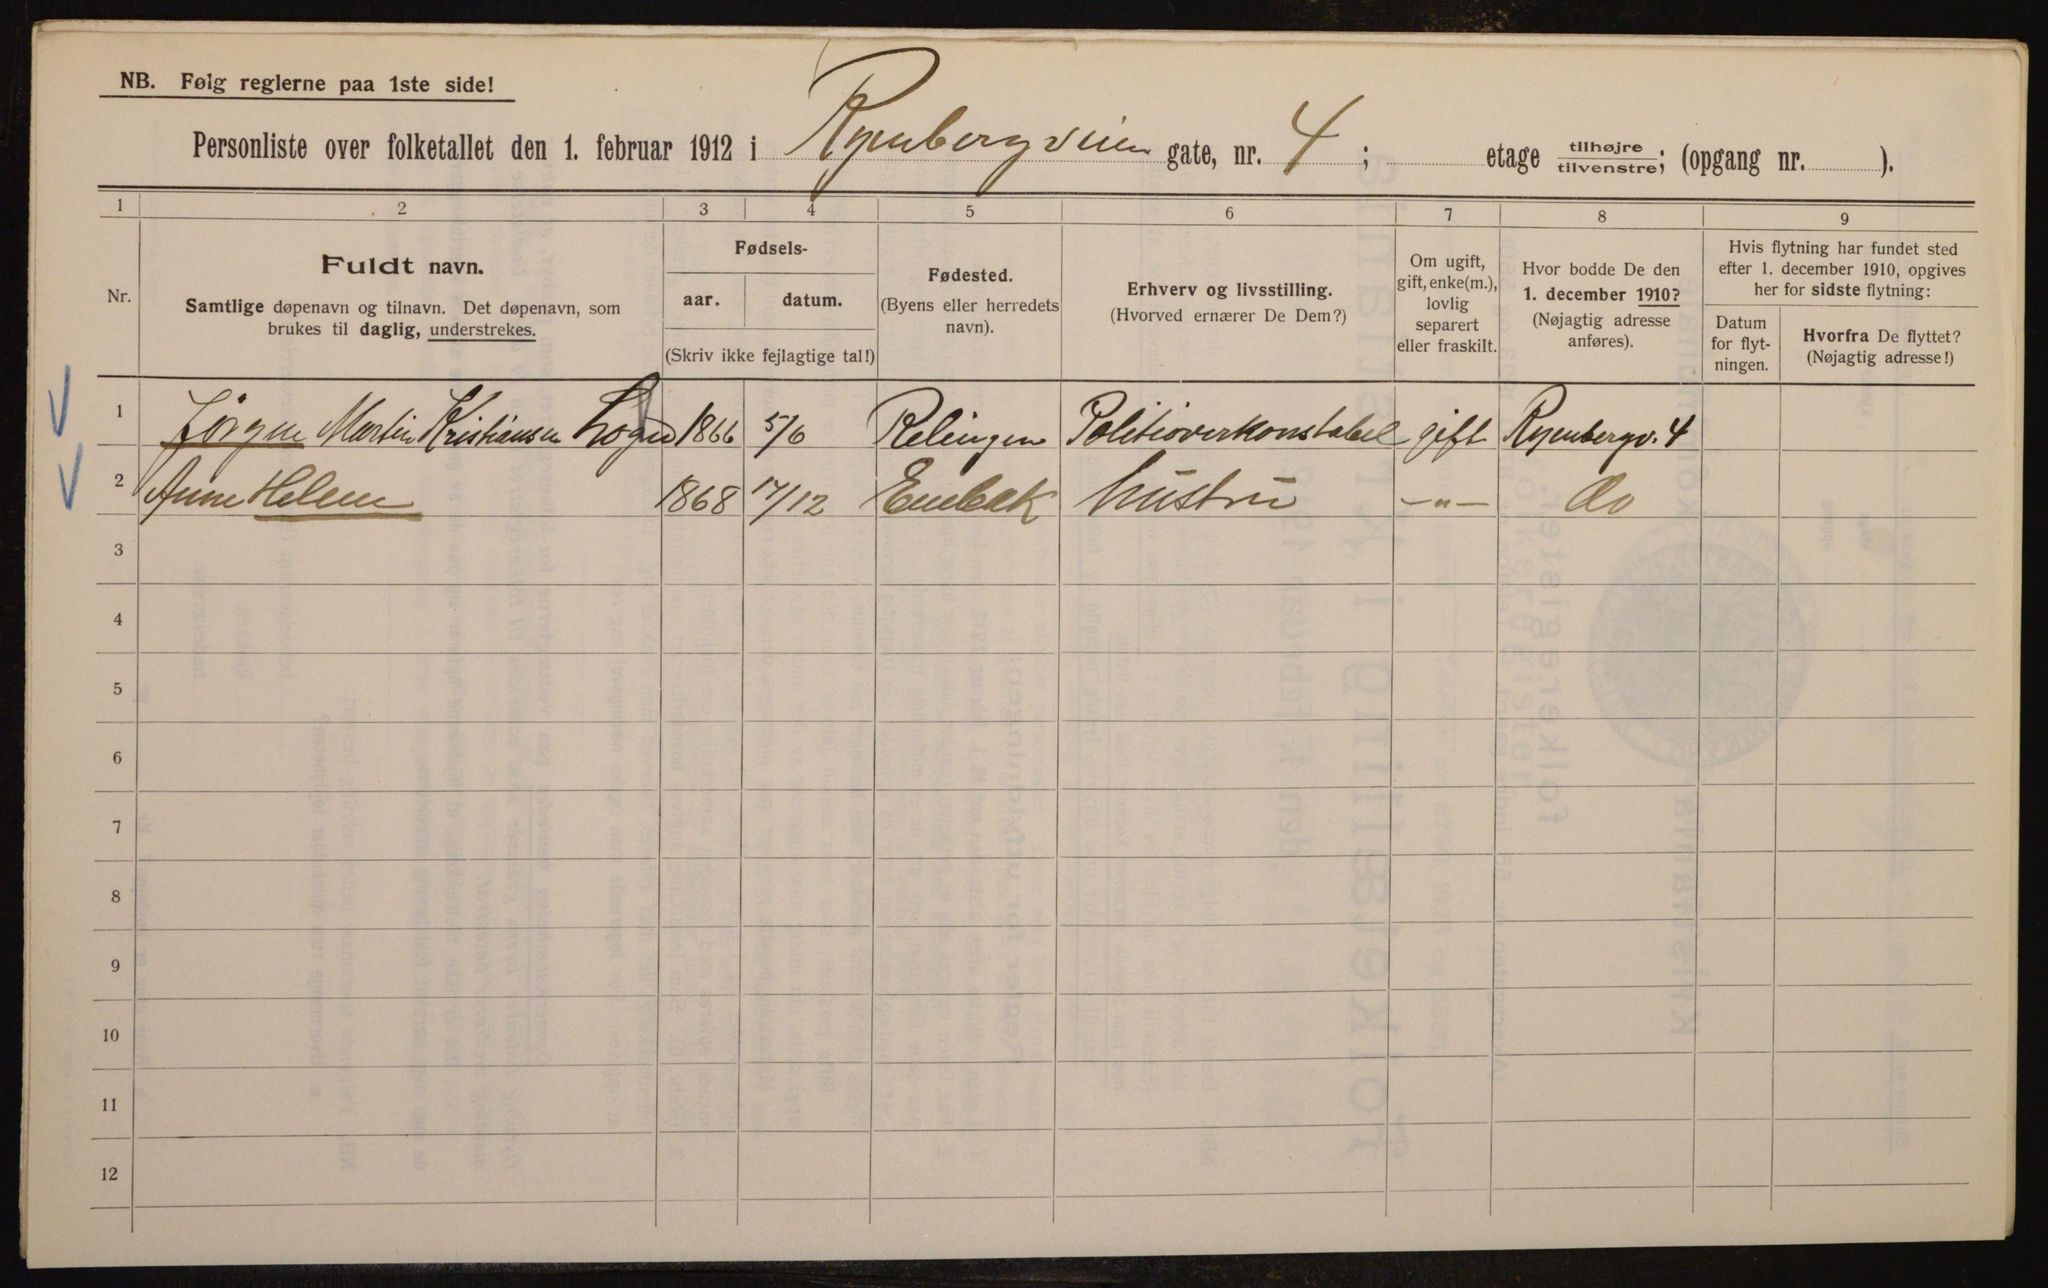 NB. Følg reglerne paa 1ste side!
Personliste over folketallet den 1. februar 1912 i Ryenbergveien gate, nr. 4; etage tilhøjre/tilvenstre; (opgang nr. ).
1 2 3 4 5 6 7 8 9
Nr.
Fuldt navn.
Samtlige døpenavn og tilnavn. Det døpenavn, som
brukes til daglig, understrekes.
Fødsels-
aar. datum.
(Skriv ikke fejlagtige tal!)
Fødested.
(Byens eller herredets
navn).
Erhverv og livsstilling.
(Hvorved ernærer De Dem?)
Om ugift,
gift, enke(m.),
lovlig
separert
eller fraskilt.
Hvor bodde De den
1. december 1910?
(Nøjagtig adresse
anføres).
Hvis flytning har fundet sted
efter 1. december 1910, opgives
her for sidste flytning:
Datum
for flyt-
ningen.
Hvorfra De flyttet?
(Nøjagtig adresse!)
1 Jörgen Martin Kristiansen 1866 5/6 Relingen Politioverkonstabel gift Ryenbergv. 4
2 Anne Helene 1868 17/12 Enebak hustru —"— do
3
4
5
6
7
8
9
10
11
12